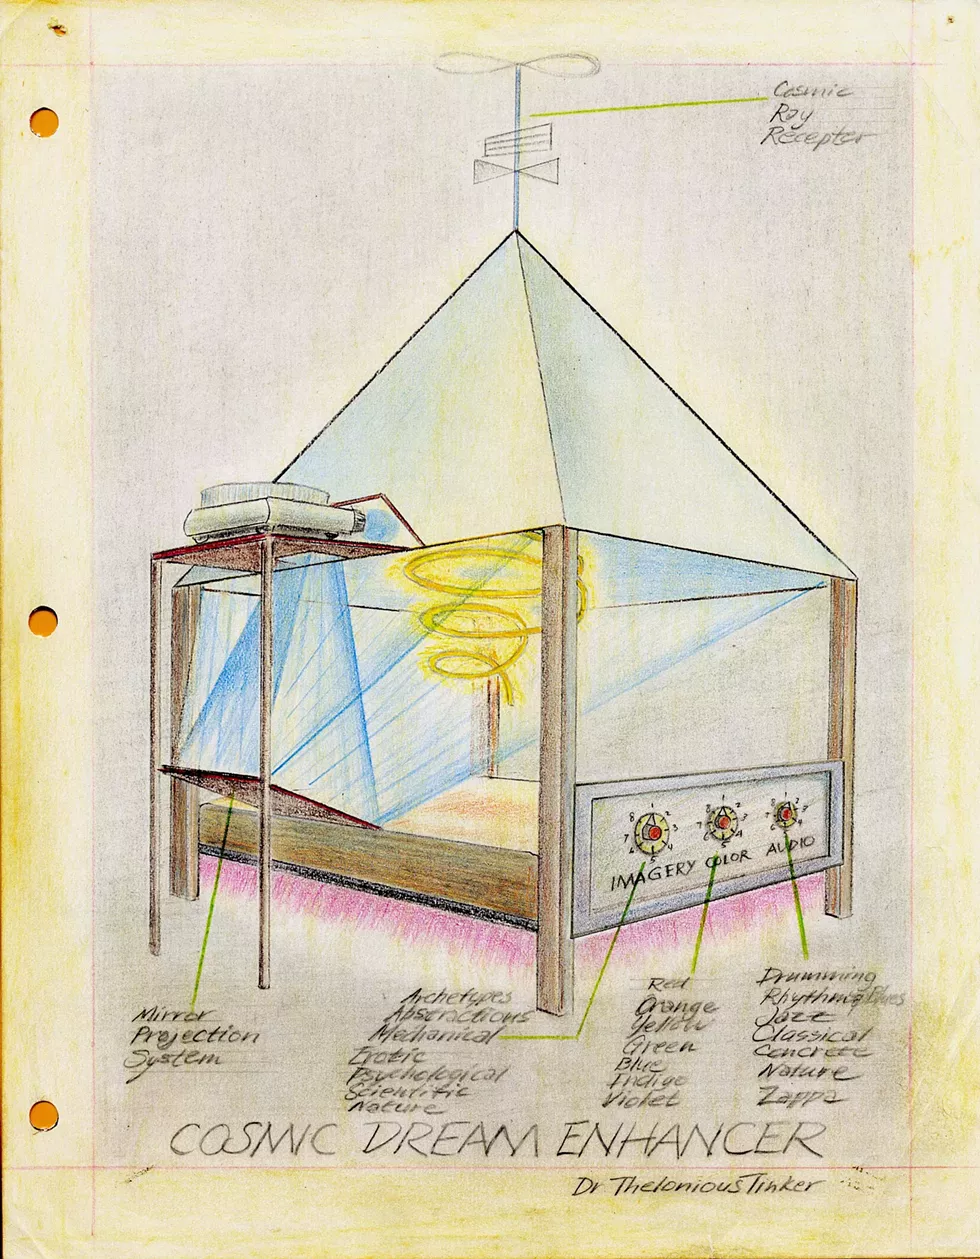 Cosmic
Ray
Recepter
8 1 2
7 3
6 5 4
IMAGERY COLOR AUDIO
Mirror
Projection
System
Archetypes
Abstractions
Mechanical
Erotic
Psychological
Scientific
Nature
Red
Orange
Yellow
Green
Blue
Indigo
Violet
Drumming
Rhythm & Blues
Jazz
Classical
Concrete
Nature
Zappa
COSMIC DREAM ENHANCER
Dr Thelonious Tinker